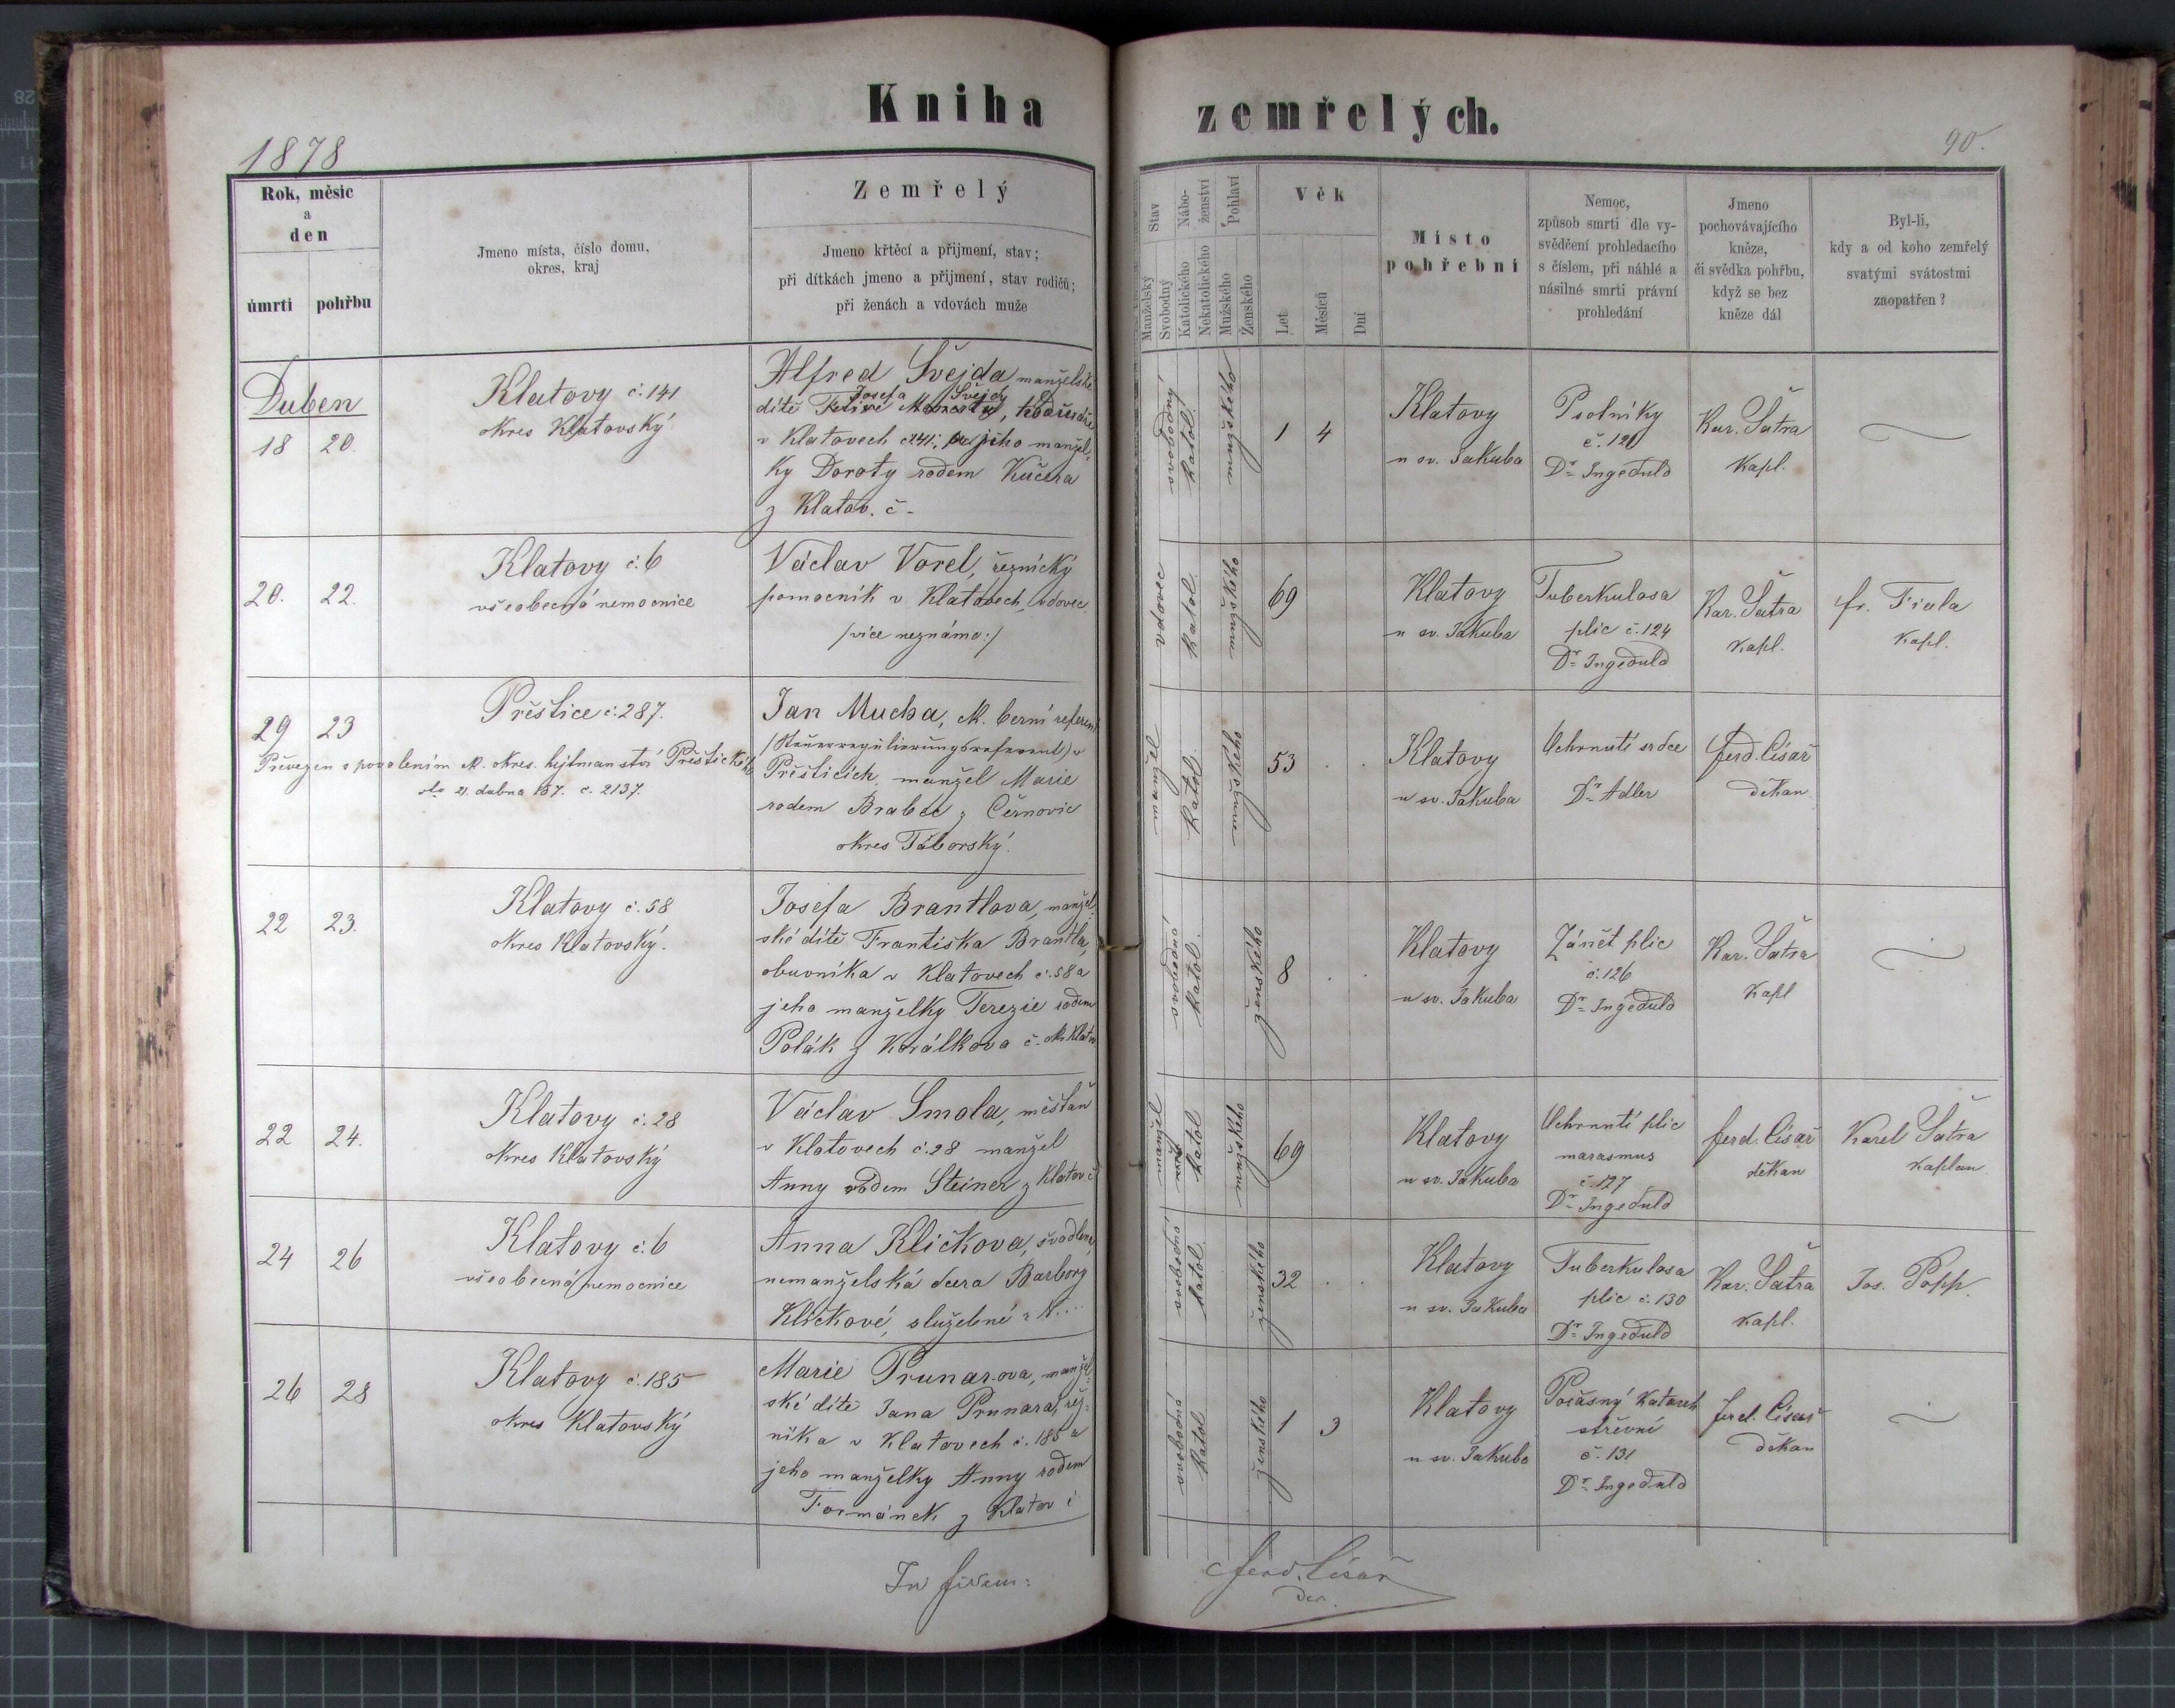 Kniha zemřelých.
1878
90.
Rok, měsíc
a
den
úmrtí
pohřbu
Jmeno místa, číslo domu,
okres, kraj
Zemřelý
Jmeno křtěcí a přijmení, stav;
při dítkách jmeno a přijmení, stav rodičů;
při ženách a vdovách muže
Stav
Manželský
Svobodný
Nábo-
ženství
Katolického
Nekatolického
Pohlaví
Mužského
Ženského
Věk
Let
Měsíců
Dní
Místo
pohřební
Nemoc,
způsob smrti dle vy-
svědčení prohledacího
s číslem, při náhlé a
násilné smrti právní
prohledání
Jmeno
pochovávajícího
kněze,
či svědka pohřbu,
když se bez
kněze dál
Byl-li,
kdy a od koho zemřelý
svatými svátostmi
zaopatřen?
Duben
18 20.
Klatovy č. 141
okres Klatovský
Alfred Švejda, manželské
dítě Josefa Švejdy
v Klatovech č. 141; a jeho manžel-
ky Doroty rodem Kučera
z Klatov. č -
svobodný
katol.
mužského
1 4
Klatovy
u sv. Jakuba
Psotníky
č. 120
Dr Ingeduld
Kar. Šatra
Kapl.
20. 22.
Klatovy č. 6
všeobecná nemocnice
Václav Vorel, řeznický
pomocník v Klatovech, vdovec.
/více neznámo:/
vdovec
katol.
mužského
69
Klatovy
u sv. Jakuba
Tuberkulosa
plic č. 124
Dr Ingeduld
Kar. Šatra
kapl.
fr. Fiala
kapl.
29 23
Přeštice č. 287.
Převezen s povolením k. okres. hejtmanství Přeštického
dto 21. dubna 187. č. 2137.
Jan Mucha, k. berní referent
/Steuerregulierungsreferent/ v
Přešticích manžel Marie
rodem Brabec z Černovic
okres Táborský.
manžel
katol.
mužského
53 . .
Klatovy
u sv. Jakuba
Ochrnutí srdce
Dr Adler
ferd. Císař
děkan
22 23.
Klatovy č. 58
okres Klatovský.
Josefa Brantlova, manžel-
ské dítě Františka Brantla,
obuvníka v Klatovech č. 58 a
jeho manželky Terezie rodem
Polák z Korálkova č. - ok. Klatov
svobodná
katol.
ženského
8 . .
Klatovy
u sv. Jakuba
Zánět plic
č. 126
Dr Ingeduld
Kar. Šatra
Kapl
22 24.
Klatovy č. 28
okres Klatovský
Václav Smola, měšťan
v Klatovech č. 28 manžel
Anny rodem Steiner z Klatov č
manžel
katol
mužského
69
Klatovy
u sv. Jakuba
Ochrnutí plic
marasmus
č. 127
Dr Ingeduld
ferd. Císař
děkan
Karel Šatra
kaplan
24 26
Klatovy č. 6
všeobecná nemocnice
Anna Kličkova, švadlena,
nemanželská dcera Barbory
Kličkové, služebné z N....
svobodná
katol.
ženského
32 . .
Klatovy
u sv. Jakuba
Tuberkulosa
plic č. 130
Dr Ingeduld
Kar. Šatra
kapl.
Jos. Popp.
26 28
Klatovy č. 185
okres Klatovský
Marie Prunarova, manžel-
ské dítě Jana Prunara, řez-
níka v Klatovech č. 185 a
jeho manželky Anny rodem
Formánek z Klatov č
svobodná
katol
ženského
1 3
Klatovy
u sv. Jakuba
Počasný katarrh
střevní
č. 131
Dr Ingeduld
ferd. Císař
děkan
In fidem:
ferd. Císař